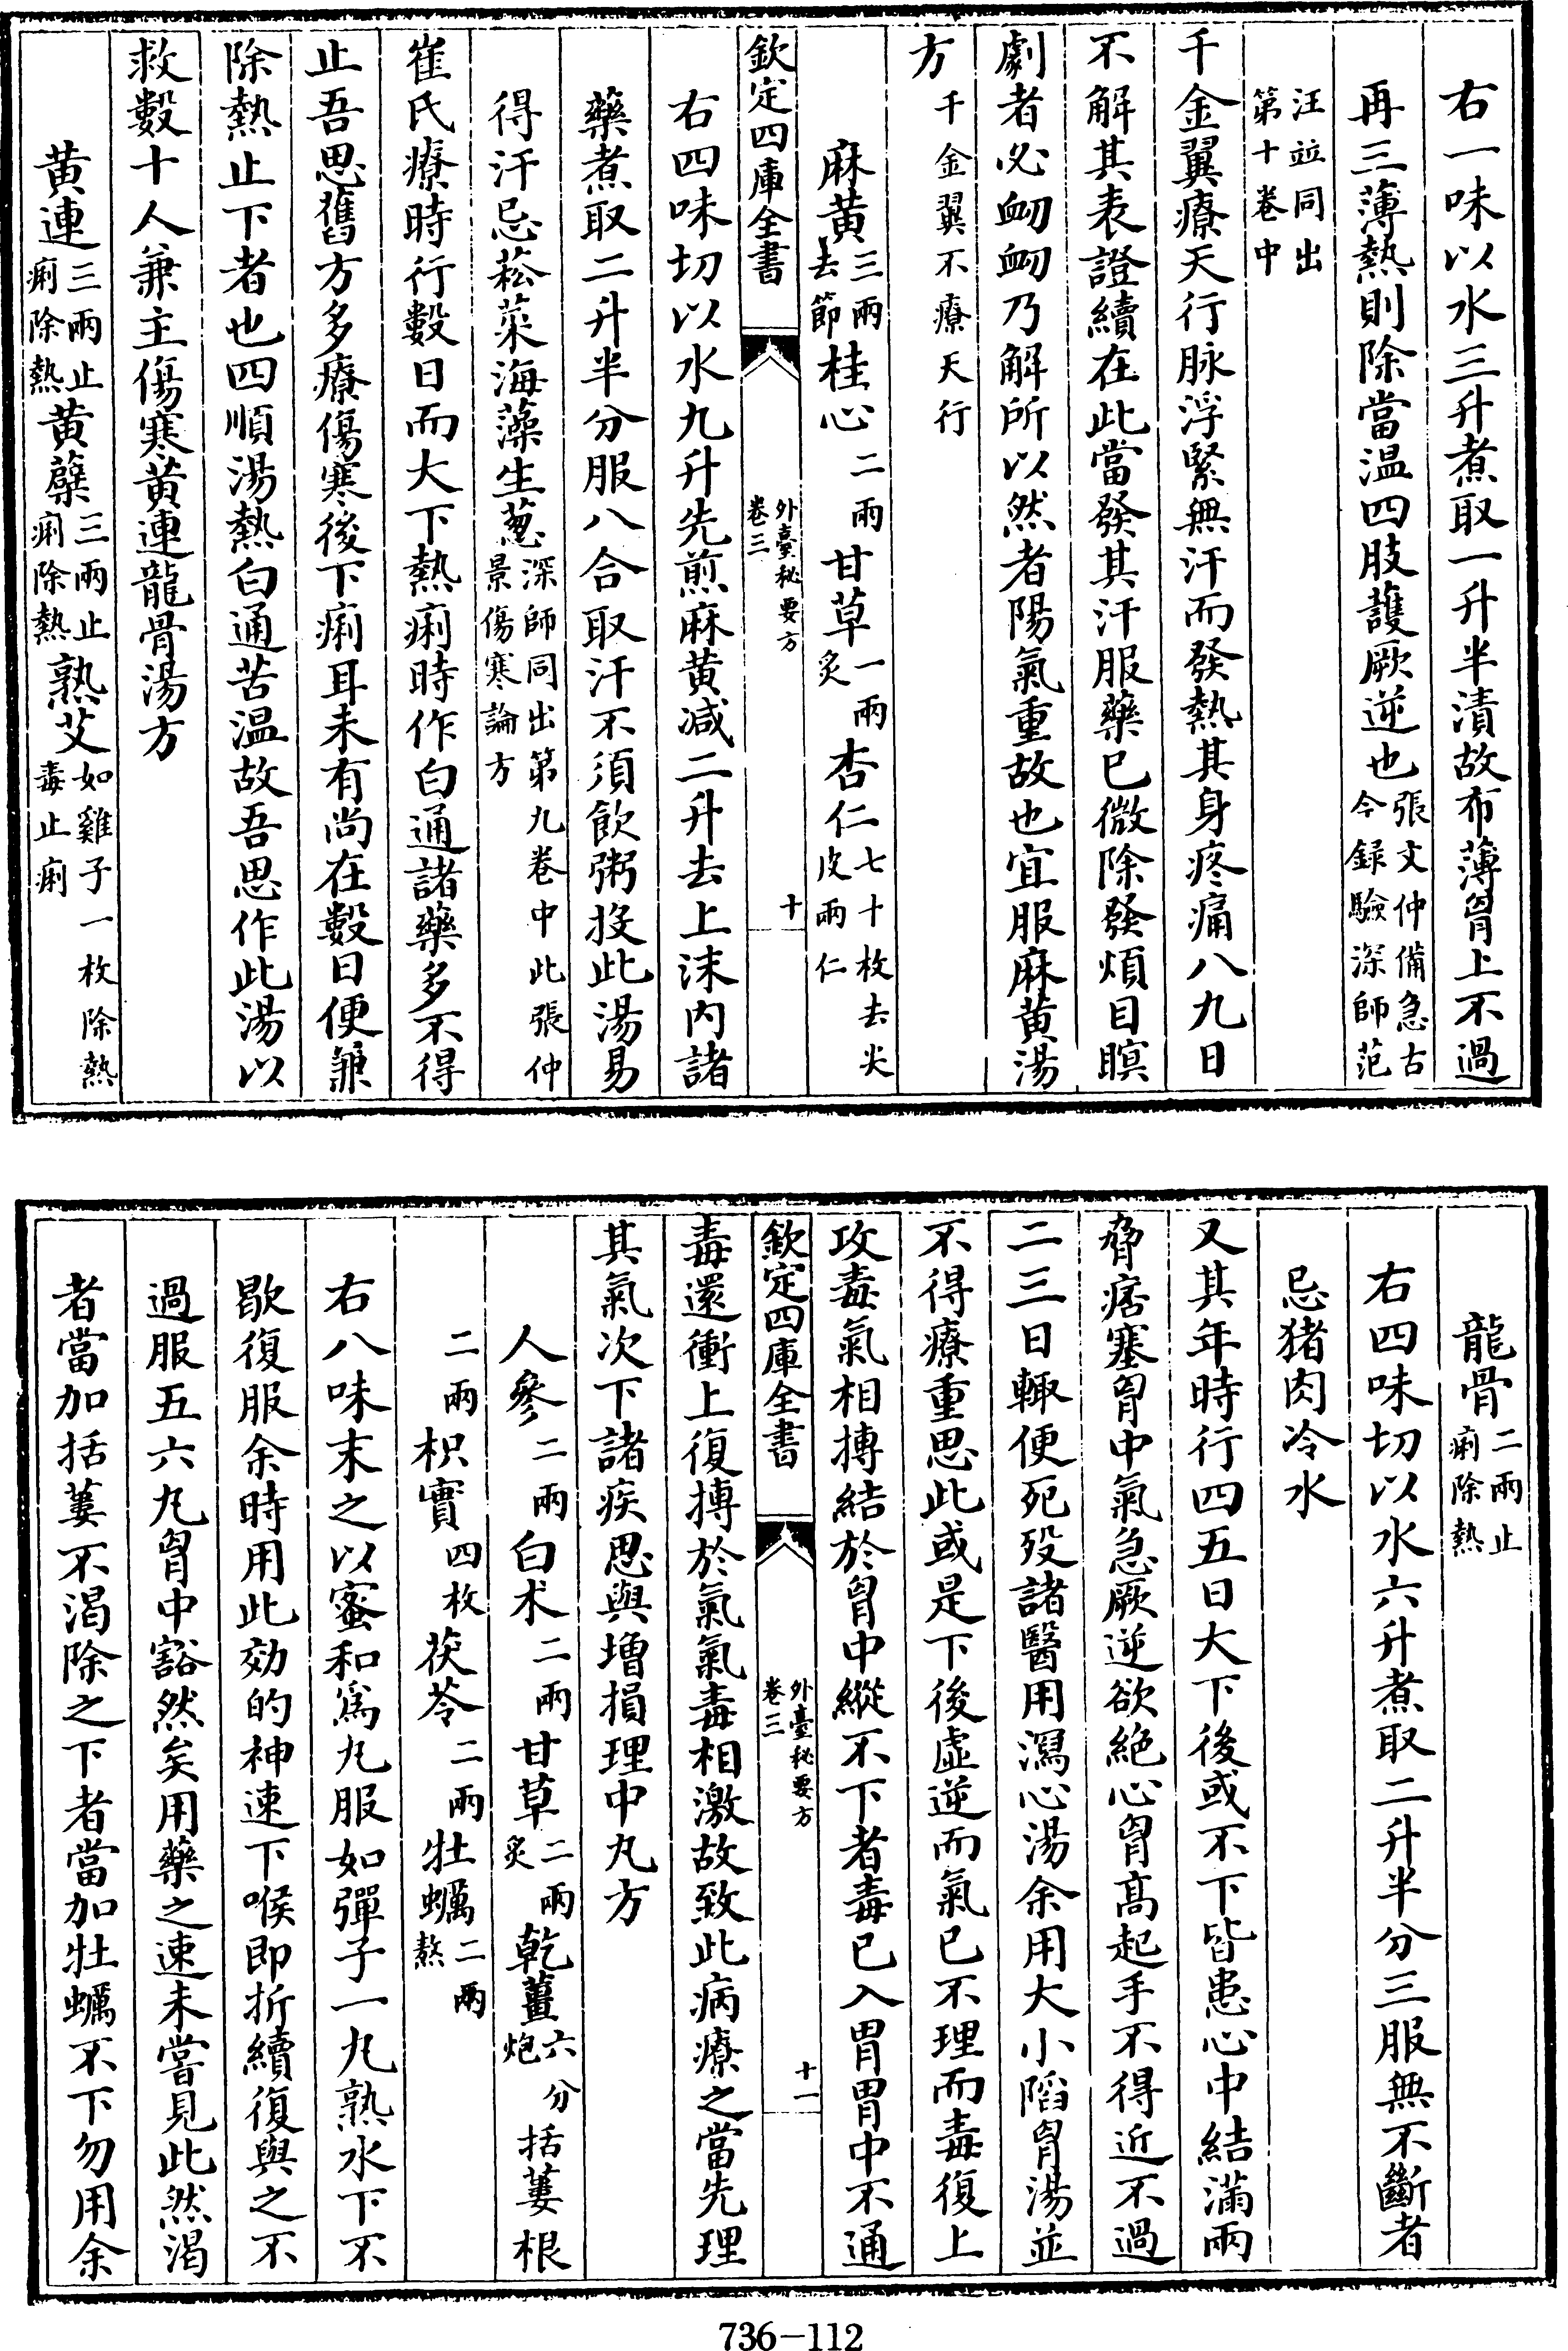 右一味以水三升煮取一升半漬故布薄胷上不過
再三薄熱則除當温四肢護厥逆也張文仲備急古今録驗深師范
汪竝同出第十卷中
千金翼療天行脉浮緊無汗而發熱其身疼痛八九日
不解其表證續在此當發其汗服藥已微除發煩目瞑
劇者必衂衂乃解所以然者陽氣重故也宜服麻黄湯
方千金翼不療天行
麻黄三兩去節桂心二兩甘草一兩炙杏仁七十枚去尖皮兩仁
欽定四庫全書
外臺秘要方卷三
十
右四味切以水九升先煎麻黄減二升去上沫内諸
藥煮取二升半分服八合取汗不須飲粥投此湯易
得汗忌菘菜海藻生葱深師同出第九卷中此張仲景傷寒論方
崔氏療時行數日而大下熱痢時作白通諸藥多不得
止吾思舊方多療傷寒後下痢耳未有尚在數日便兼
除熱止下者也四順湯熱白通苦温故吾思作此湯以
救數十人兼主傷寒黄連龍骨湯方
黄連三兩止痢除熱黄蘗三兩止痢除熱熟艾如雞子一枚除熱毒止痢
龍骨二兩止痢除熱
右四味切以水六升煮取二升半分三服無不斷者
忌猪肉冷水
又其年時行四五日大下後或不下皆患心中結滿兩
脅痞塞胷中氣急厥逆欲絶心胷高起手不得近不過
二三日輙便死殁諸醫用瀉心湯余用大小陷胷湯並
不得療重思此或是下後虚逆而氣已不理而毒復上
攻毒氣相搏結於胷中縱不下者毒已入胃胃中不通
欽定四庫全書
外臺秘要方卷三
十一
毒還衝上復搏於氣氣毒相激故致此病療之當先理
其氣次下諸疾思與増損理中丸方
人參二兩白术二兩甘草二兩炙乾薑六分炮括蔞根
二兩枳實四枚茯苓二兩牡蠣二兩熬
右八味末之以蜜和為丸服如彈子一丸熟水下不
歇復服余時用此効的神速下喉即折續復與之不
過服五六丸胷中豁然矣用藥之速未嘗見此然渴
者當加括蔞不渴除之下者當加牡蠣不下勿用余
736-112